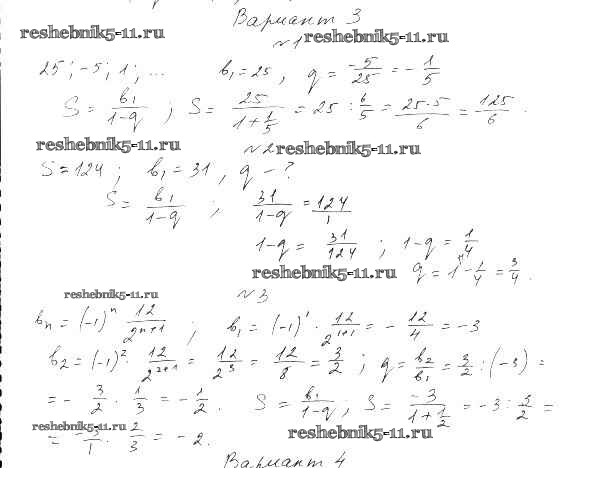 Вариант 3
reshebnik5-11.ru
№1 reshebnik5-11.ru
25; -5; 1; ... b₁ = 25, q = -5/25 = -1/5
S = b₁/(1-q); S = 25/(1+1/5) = 25 : 6/5 = (25·5)/6 = 125/6.
reshebnik5-11.ru №2 reshebnik5-11.ru
S = 124; b₁ = 31, q - ?
S = b₁/(1-q); 31/(1-q) = 124/1
1-q = 31/124; 1-q = 1/4
reshebnik5-11.ru q = 1 - 1/4 = 3/4.
reshebnik5-11.ru №3
bₙ = (-1)ⁿ 12/2ⁿ⁺¹; b₁ = (-1)¹ · 12/2¹⁺¹ = -12/4 = -3
b₂ = (-1)² · 12/2²⁺¹ = 12/2³ = 12/8 = 3/2; q = b₂/b₁ = 3/2 : (-3) =
= -3/2 · 1/3 = -1/2. S = b₁/(1-q); S = -3/(1+1/2) = -3 : 3/2 =
reshebnik5-11.ru
= -3/1 · 2/3 = -2. reshebnik5-11.ru
Вариант 4